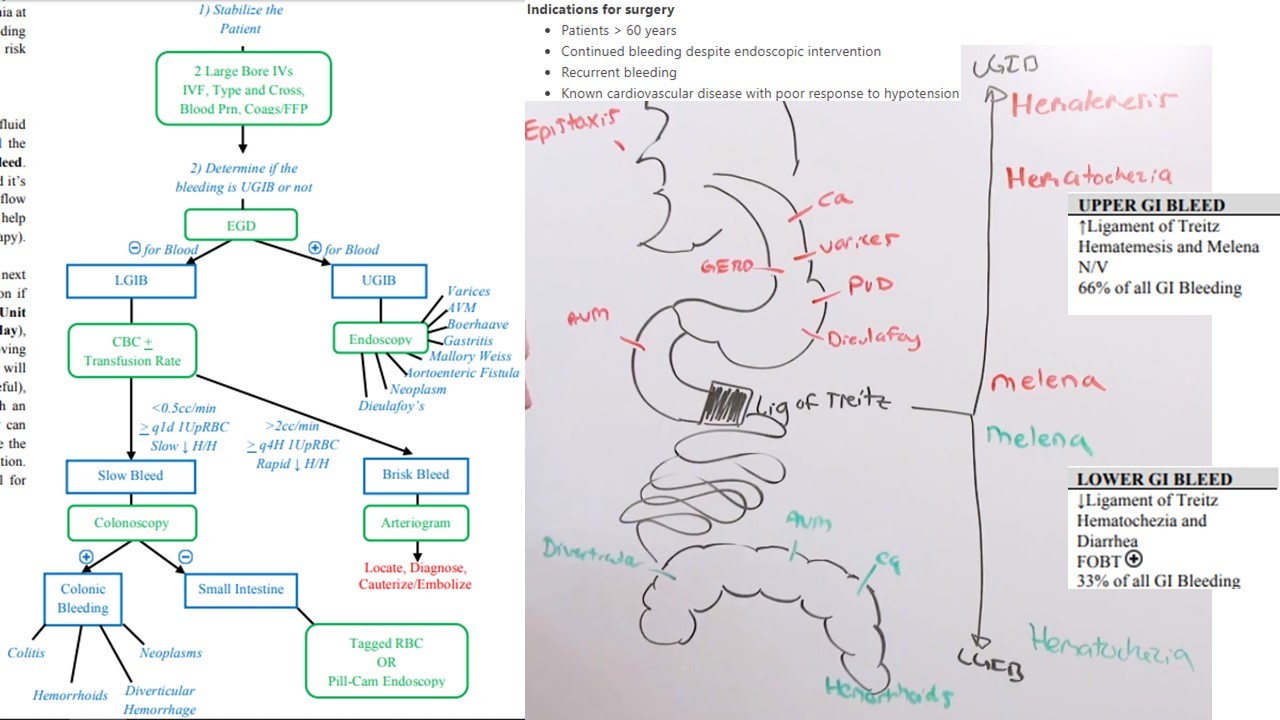 ia at
ding
risk
fluid
the
leed.
d it's
flow
help
apy).
next
on if
Unit
lay),
ving
will
eful),
h an
can
e the
tion.
l for
1) Stabilize the
Patient
2 Large Bore IVs
IVF, Type and Cross,
Blood Prn, Coags/FFP
2) Determine if the
bleeding is UGIB or not
EGD
⊖ for Blood
⊕ for Blood
LGIB
UGIB
CBC ±
Transfusion Rate
Endoscopy
Varices
AVM
Boerhaave
Gastritis
Mallory Weiss
Aortoenteric Fistula
Neoplasm
Dieulafoy's
<0.5cc/min
≥ q1d 1UpRBC
Slow ↓ H/H
>2cc/min
≥ q4H 1UpRBC
Rapid ↓ H/H
Slow Bleed
Brisk Bleed
Colonoscopy
Arteriogram
⊕
⊖
Locate, Diagnose,
Cauterize/Embolize
Colonic
Bleeding
Small Intestine
Colitis
Neoplasms
Hemorrhoids
Diverticular
Hemorrhage
Tagged RBC
OR
Pill-Cam Endoscopy
Indications for surgery
• Patients > 60 years
• Continued bleeding despite endoscopic intervention
• Recurrent bleeding
• Known cardiovascular disease with poor response to hypotension
Epistaxis
Ca
Varices
GERD
PUD
AVM
Dieulafoy
Lig of Treitz
Diverticular
AVM
Ca
Hemorrhoids
UGIB
Hematemesis
Hematochezia
melena
melena
Hematochezia
LGIB
UPPER GI BLEED
↑Ligament of Treitz
Hematemesis and Melena
N/V
66% of all GI Bleeding
LOWER GI BLEED
↓Ligament of Treitz
Hematochezia and
Diarrhea
FOBT ⊕
33% of all GI Bleeding